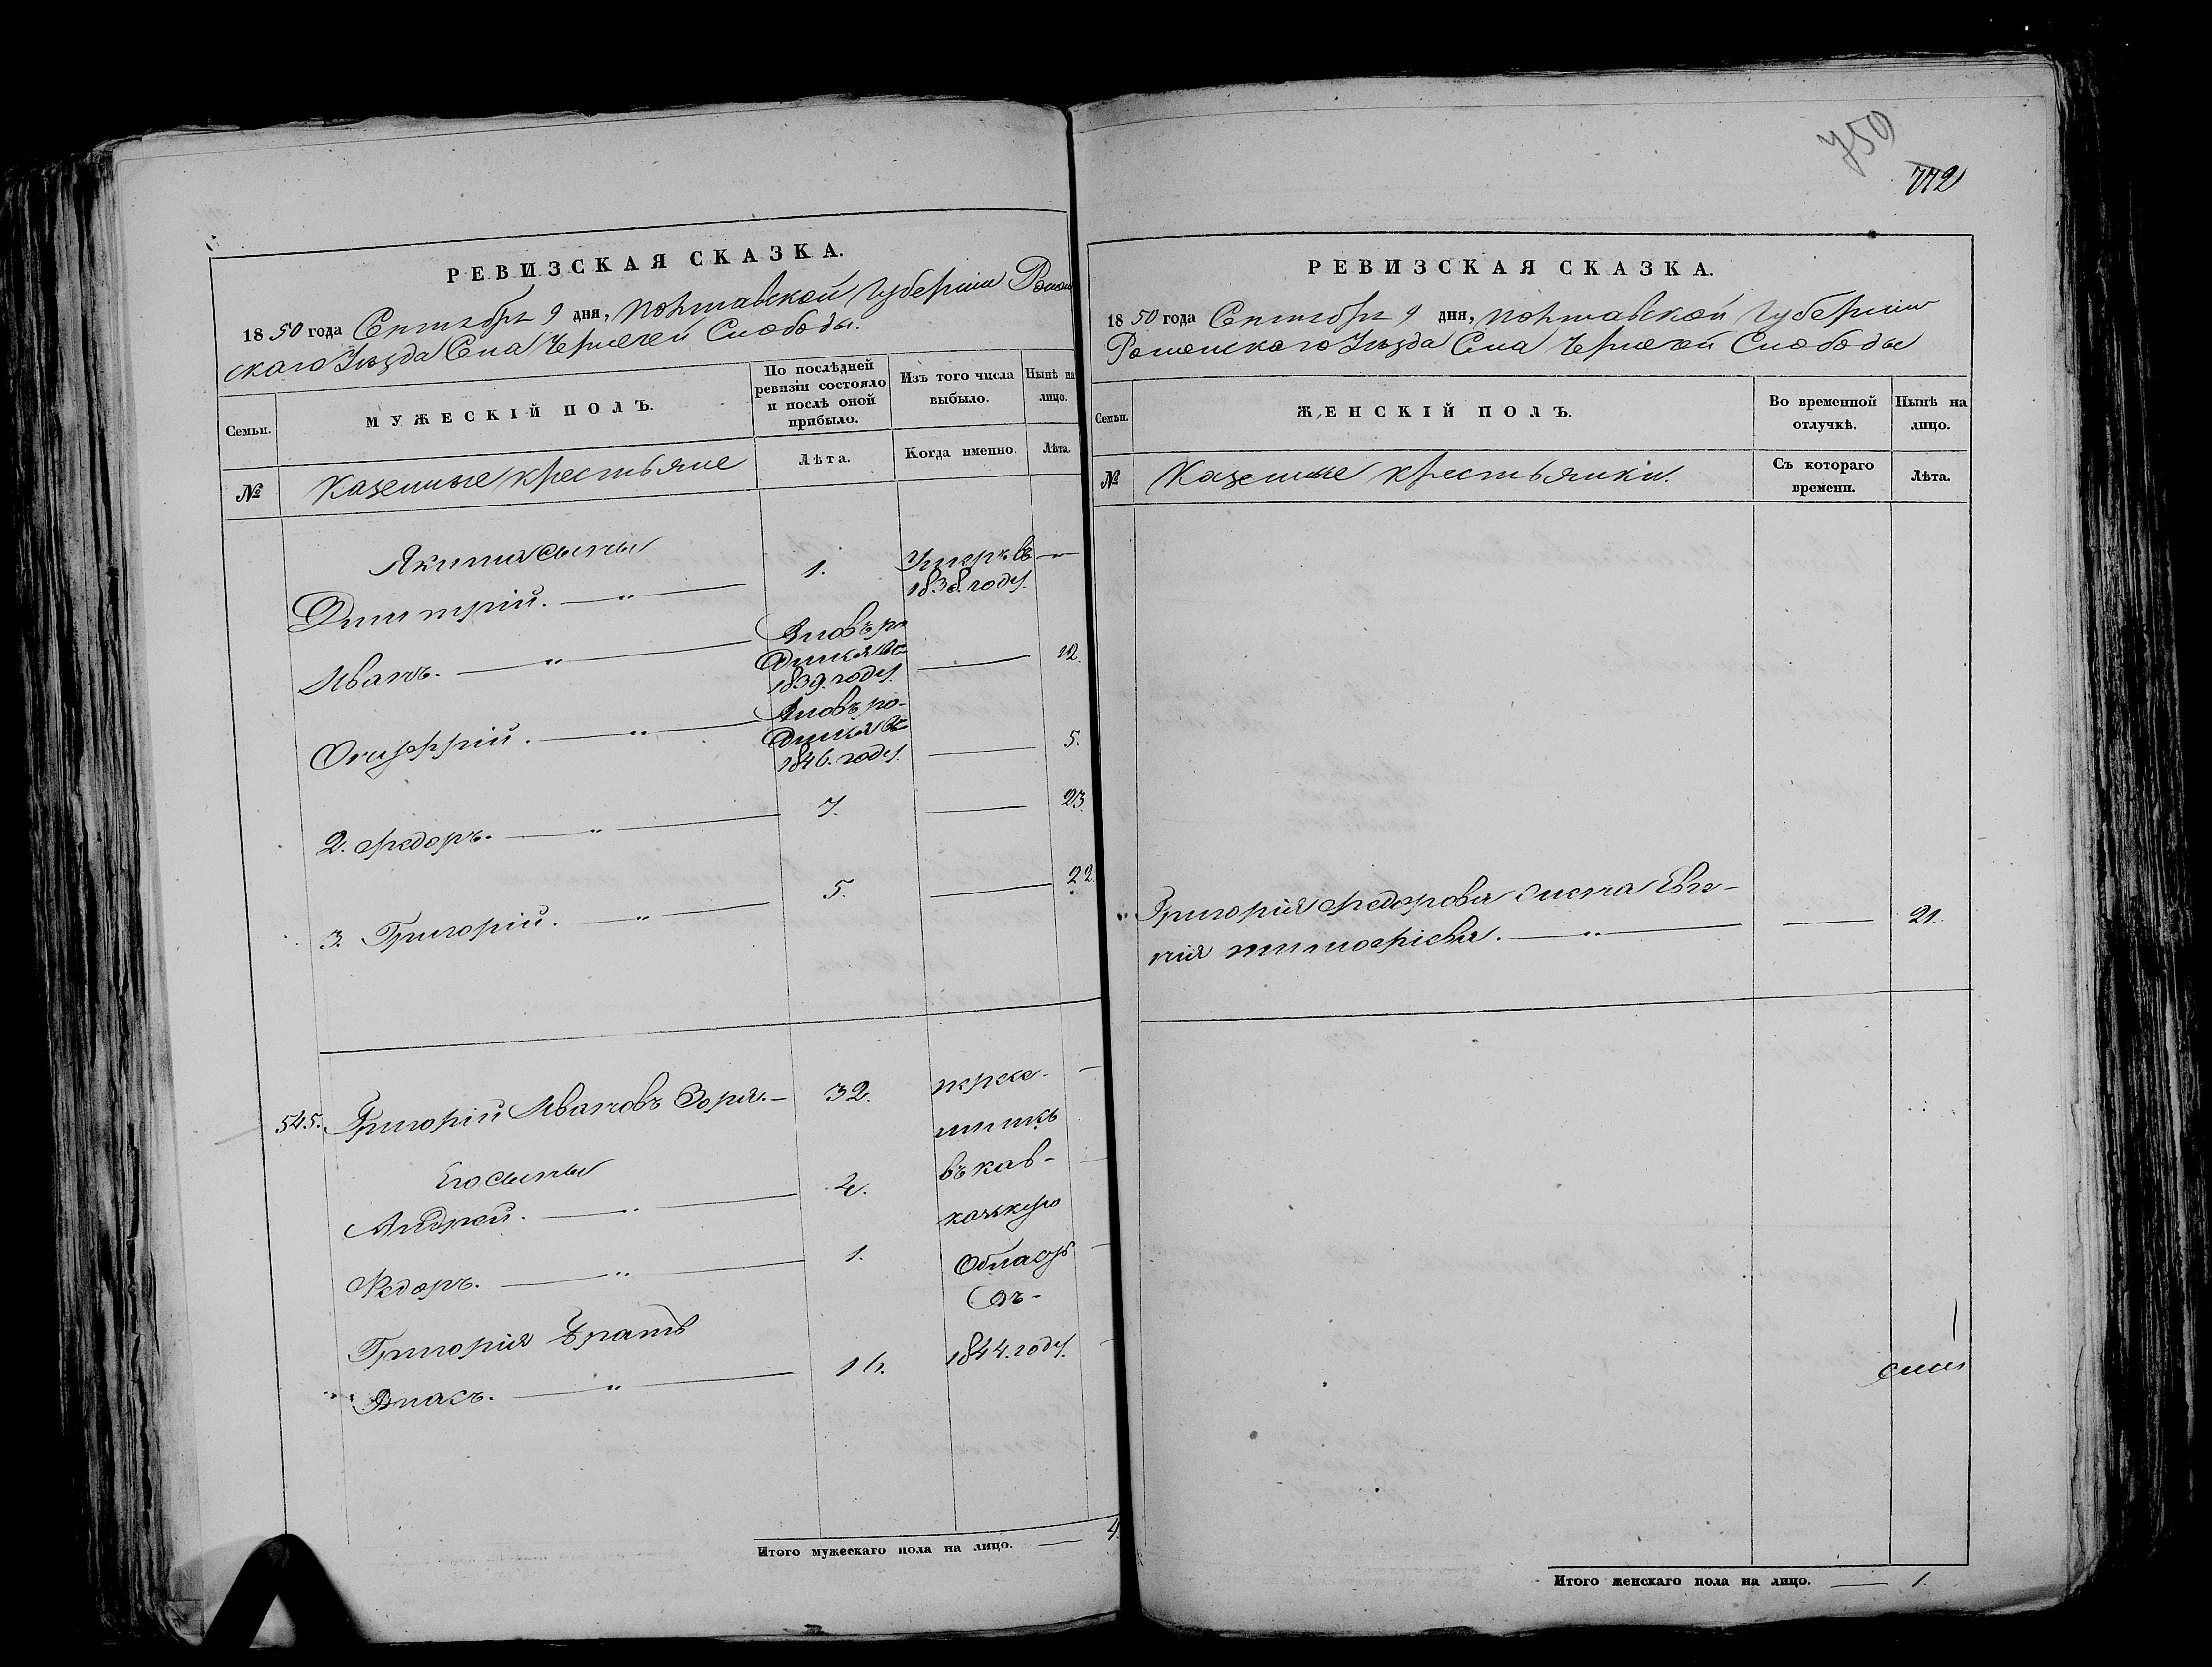 РЕВИЗСКАЯ СКАЗКА.
1850 года Сентября 9 дня, Полтавской Губернии Ромен
скаго Уѣзда Села Чернечей Слободы.
Семьи.
МУЖЕСКІЙ ПОЛЪ.
По послѣдней
ревизіи состояло
и послѣ оной
прибыло.
Изъ того числа
выбыло.
Нынѣ на
лицо.
№
Казенные крестьяне
Лѣта.
Когда именно.
Лѣта.
Якима сыны
Дмитрій. — „ — 1. Умеръ въ —
1838. году.
Иванъ. — „ — Вновь ро
дился въ
1839. году. — 12.
Онуфрій. — „ — Вновь ро-
дился въ
1846. году. — 5.
2. Федоръ. — „ — 7. — 23.
3. Григорій. — „ — 5. — 22.
545. Григорій Ивановъ Зоря. — 32. пересе- —
лились
Его сыны
Андрей. — „ — 2. въ кав- —
казскую
Федоръ. — „ — 1. Область —
Въ -
Григорія Братъ
Власъ. — „ — 16. 1844. году. —
Итого мужескаго пола на лицо. — 4.
750
772
РЕВИЗСКАЯ СКАЗКА.
1850 года Сентября 9 дня, Полтавской Губернии
Роменскаго Уѣзда Села Чернечей Слободы
Семьи.
ЖЕНСКІЙ ПОЛЪ.
Во временной
отлучкѣ.
Нынѣ на
лицо.
№
Казенные крестьянки.
Съ котораго
времени.
Лѣта.
Григорія Федорова жена Евге-
нія Тимофіева. — „ — — 21.
Итого женскаго пола на лицо. — 1.